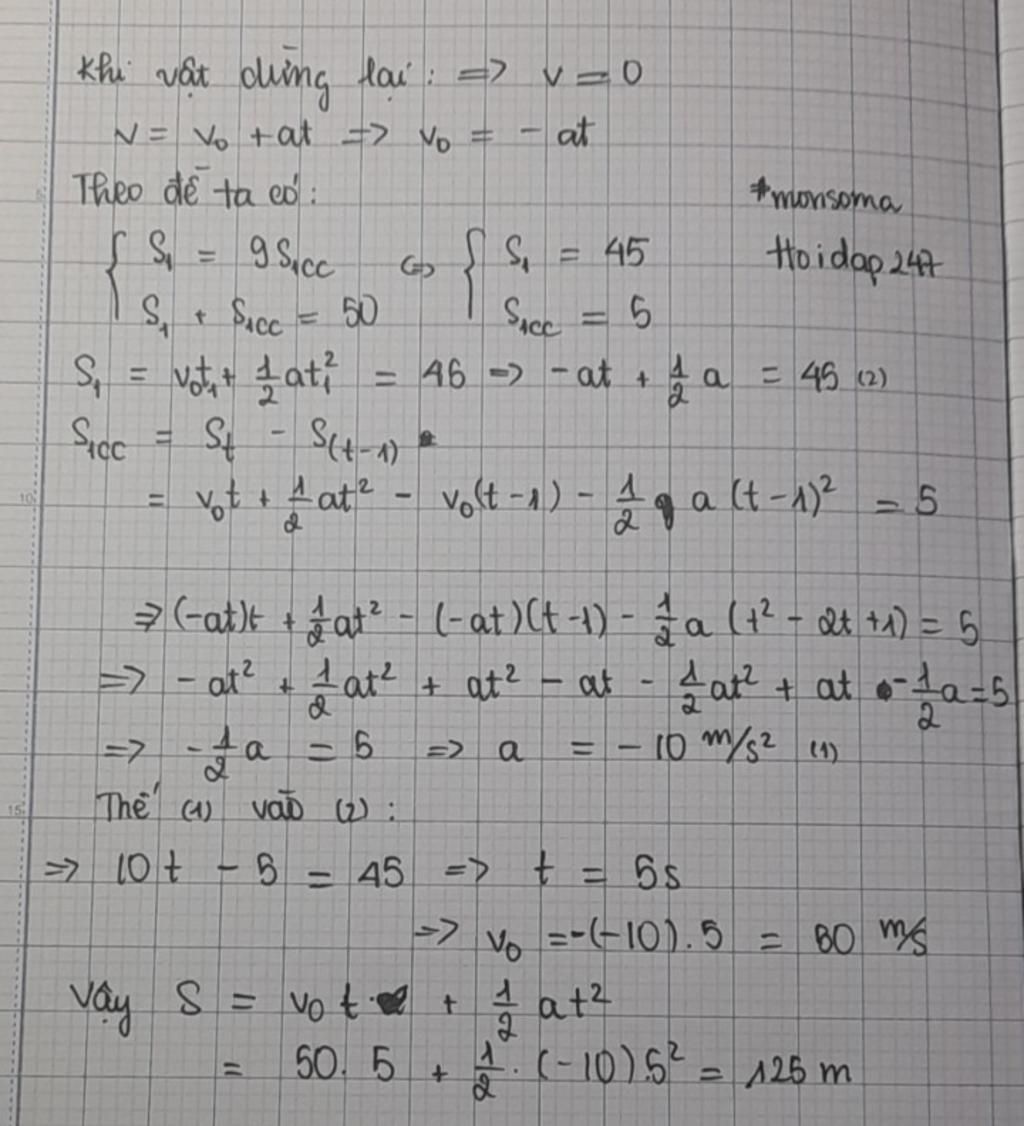 Khi vật dừng lại : => v = 0
v = v₀ + at => v₀ = - at
Theo đề ta có :
*monsoma
{ S₁ = 9S₁cc <=> { S₁ = 45
Hoidap247
S₁ + S₁cc = 50 S₁cc = 5
S₁ = v₀t₁ + 1/2 at₁² = 45 => -at + 1/2 a = 45 (2)
S₁cc = S_t - S_(t-1)
= v₀t + 1/2 at² - v₀(t-1) - 1/2 a (t-1)² = 5
=> (-at)t + 1/2 at² - (-at)(t-1) - 1/2 a (t² - 2t +1) = 5
=> - at² + 1/2 at² + at² - at - 1/2 at² + at - 1/2 a = 5
=> - 1/2 a = 5 => a = - 10 m/s² (1)
Thế (1) vào (2) :
=> 10t - 5 = 45 => t = 5s
=> v₀ = -(-10).5 = 50 m/s
Vậy S = v₀t + 1/2 at²
= 50. 5 + 1/2 . (-10).5² = 125 m
10
15